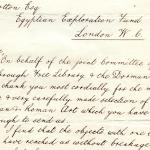 otton Esq
Egyptian Exploration Fund
London W. C.
On behalf of the joint Committee of
rough Free Library & the Dorman
thank you most cordially, for the
& very carefully made selection of
an & Roman Art which you have
ough to send us.
I find that the objects with one
have reached us without breakage